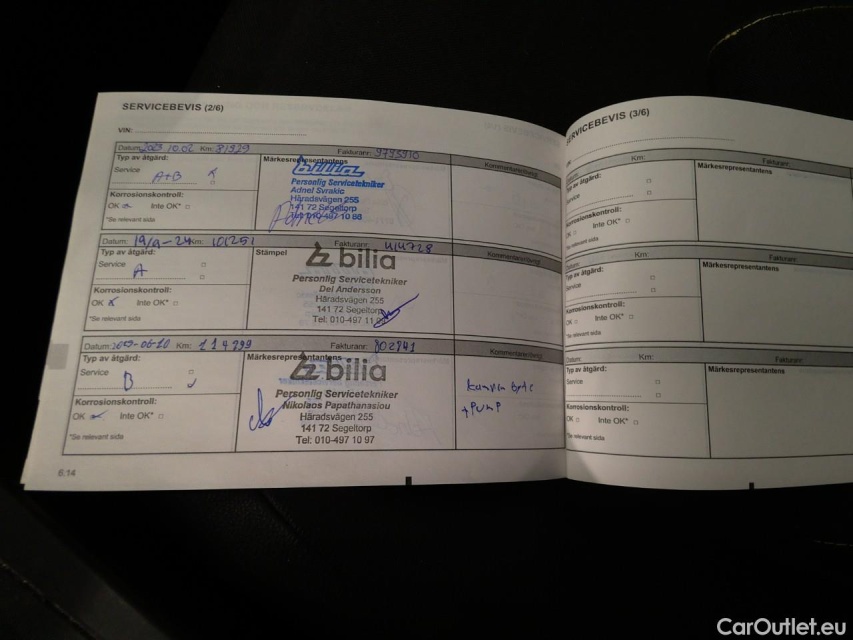 SERVICEBEVIS (2/6)
VIN:
Datum: 2023 10.02 Km: 81929 Fakturanr: 9795950
Typ av åtgärd: Märkesrepresentantens Kommentarer/övrigt
Service A+B
bilia
Personlig Servicetekniker
Adnel Svrakic
Häradsvägen 255
141 72 Segeltorp
Tel: 010-497 10 86
Korrosionskontroll:
OK Inte OK*
*Se relevant sida
Datum: 19/9-24 Km: 101251 Fakturanr: 414728
Typ av åtgärd: Stämpel Kommentarer/övrigt
Service
A
bilia
Personlig Servicetekniker
Del Andersson
Häradsvägen 255
141 72 Segeltorp
Tel: 010-497 11
Korrosionskontroll:
OK Inte OK*
*Se relevant sida
Datum: Km: 114999 Fakturanr: 802841
Typ av åtgärd: Märkesrepresentantens Kommentarer/övrigt
Service
B
bilia
Personlig Servicetekniker
Nikolaos Papathanasiou
Häradsvägen 255
141 72 Segeltorp
Tel: 010-497 10 97
+ PUMP
Korrosionskontroll:
OK Inte OK*
*Se relevant sida
6.14
SERVICEBEVIS (3/6)
Km: Fakturanr:
Typ av åtgärd: Märkesrepresentantens
Service
Korrosionskontroll:
OK Inte OK*
*Se relevant sida
Datum: Km: Fakturanr:
Typ av åtgärd: Märkesrepresentantens
Service
Korrosionskontroll:
OK Inte OK*
*Se relevant sida
Datum: Km: Fakturanr:
Typ av åtgärd: Märkesrepresentantens
Service
Korrosionskontroll:
OK Inte OK*
*Se relevant sida
CarOutlet.eu